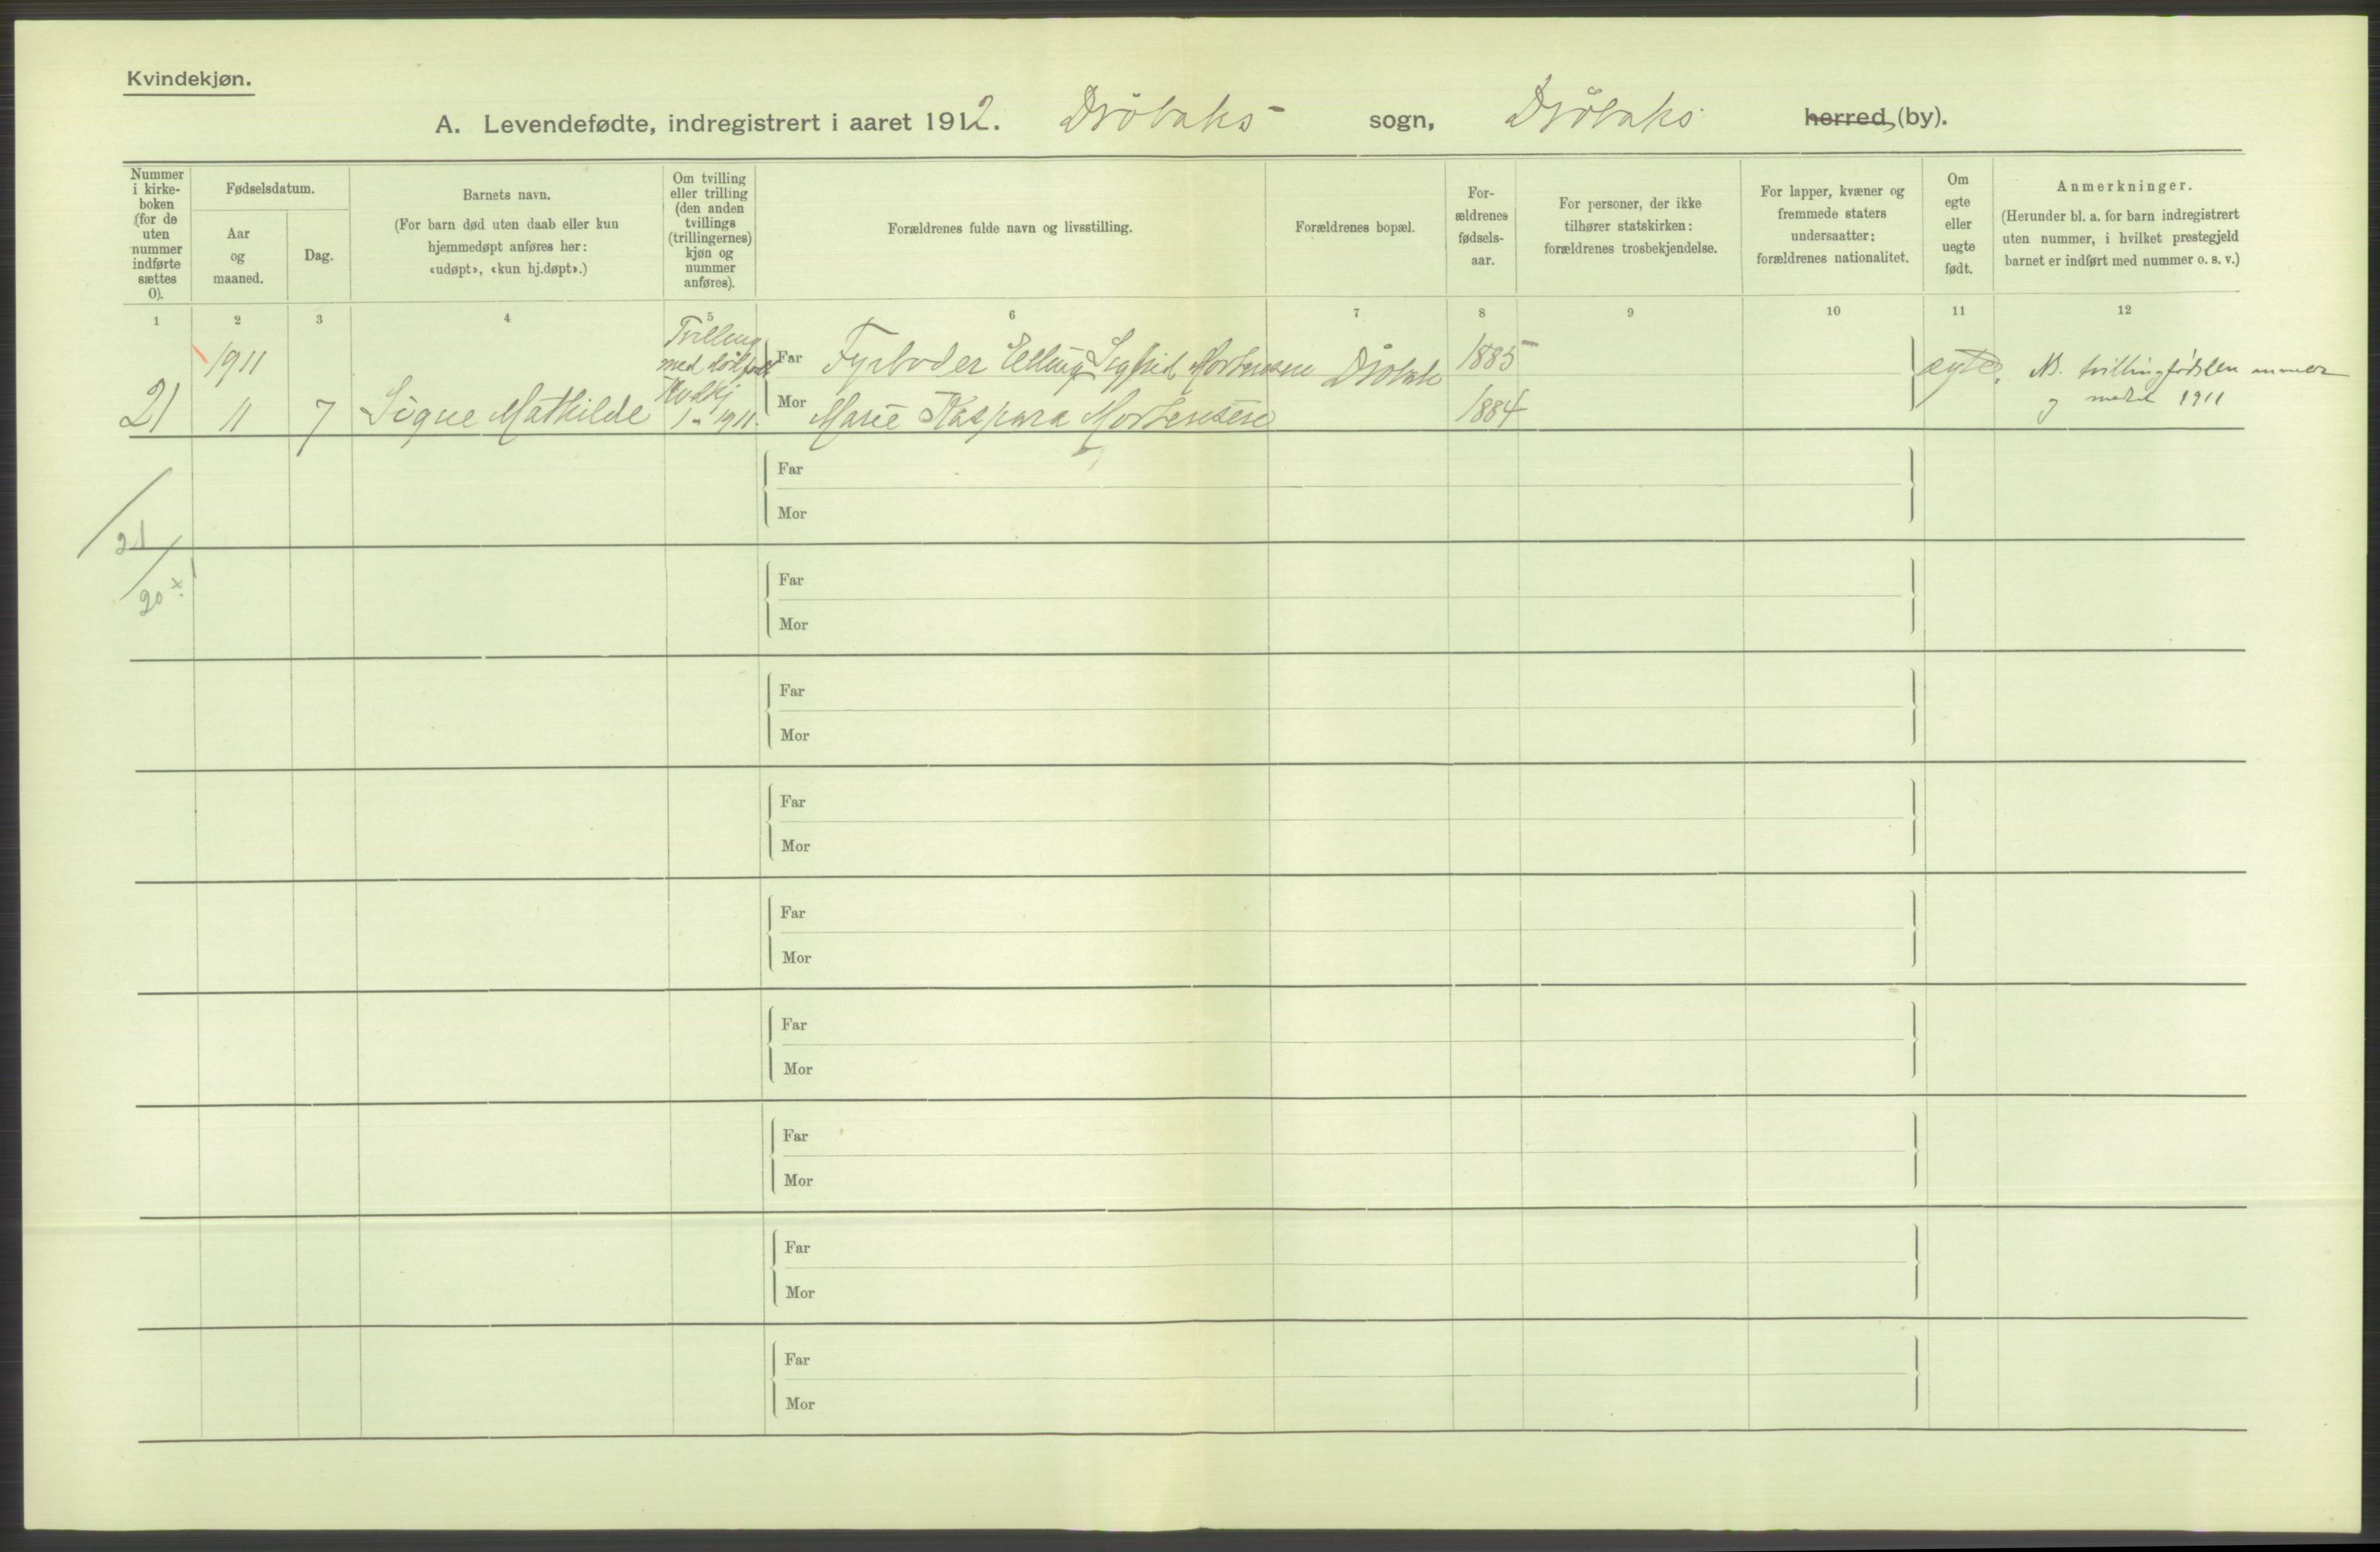 Kvindekjøn.
A. Levendefødte, indregistrert i aaret 1912. Drøbaks sogn, Drøbaks herred (by).
Nummer i kirke-
boken
(for de
uten
nummer
indførte
sættes
0).
Fødselsdatum.
Aar
og
maaned.
Dag.
Barnets navn.
(For barn død uten daab eller kun
hjemmedøpt anføres her:
«udøpt», «kun hj.døpt».)
Om tvilling
eller trilling
(den anden
tvillings
(trillingernes)
kjøn og
nummer
anføres).
Forældrenes fulde navn og livsstilling.
Forældrenes bopæl.
For-
ældrenes
fødsels-
aar.
For personer, der ikke
tilhører statskirken:
forældrenes trosbekjendelse.
For lapper, kvæner og
fremmede staters
undersaatter:
forældrenes nationalitet.
Om
egte
eller
uegte
født.
Anmerkninger.
(Herunder bl. a. for barn indregistrert
uten nummer, i hvilket prestegjeld
barnet er indført med nummer o. s. v.)
1 2 3 4 5 6 7 8 9 10 11 12
1911
Tvilling
med dødfødt
1 - 1911.
Far Fyrbøder Elling Sigfrid Mortensen Drøbak 1885
ægte.
21 11 7 Signe Mathilde
Mor Marie Kaspara Mortensen 1884
N. tvillingfødslen
medt 1911
Far
Mor
21
20
Far
Mor
Far
Mor
Far
Mor
Far
Mor
Far
Mor
Far
Mor
Far
Mor
Far
Mor